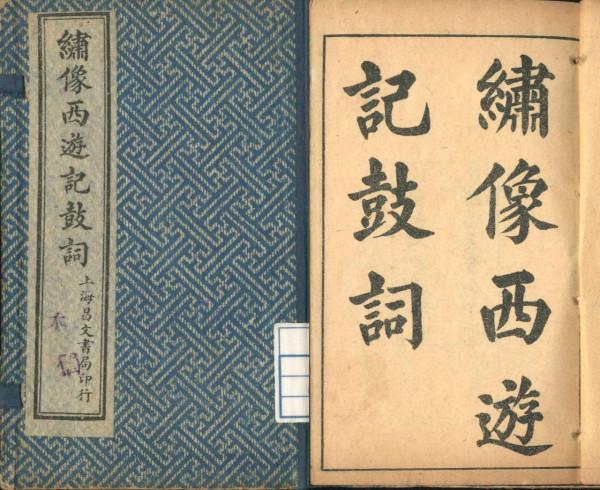 繡像西遊記鼓詞
上海昌文書局印行
繡像西遊
記鼓詞